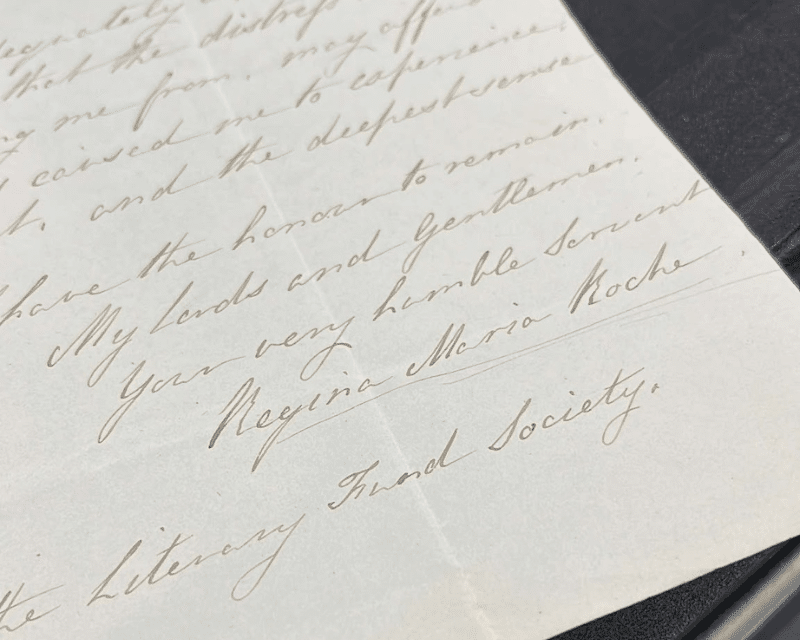 that the distress
me from, may afford
caused me to experience,
and the deepest sense
have the honour to remain.
My Lords and Gentlemen.
Your very humble Servant
Regina Maria Roche
the Literary Fund Society.